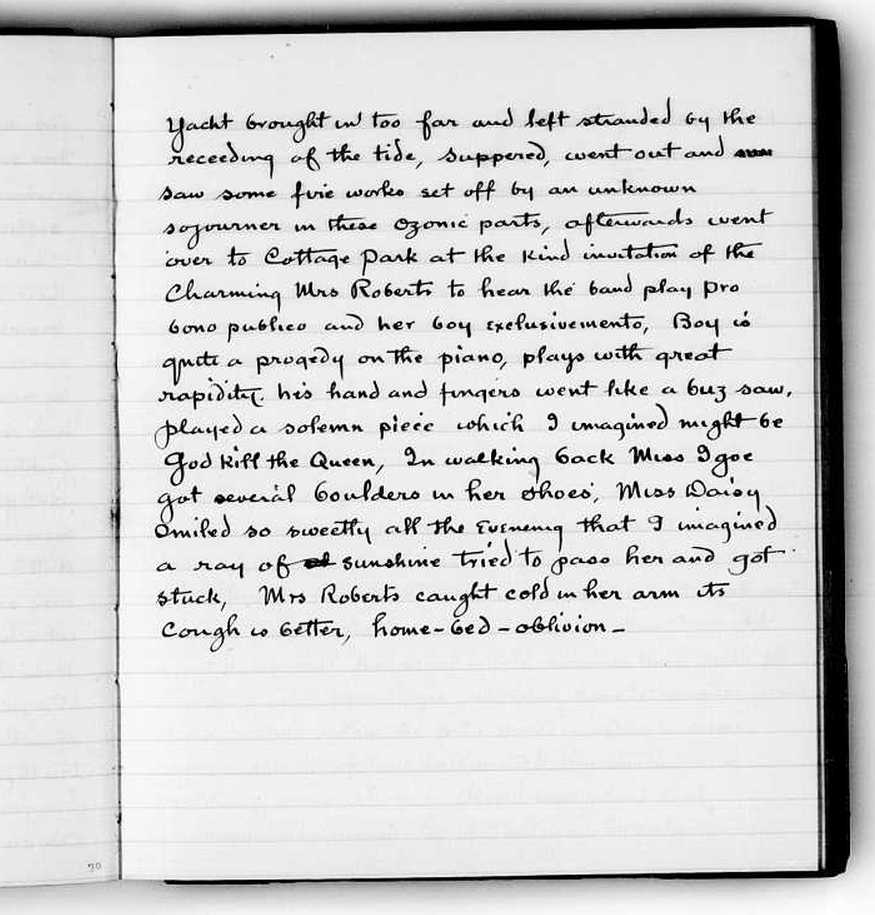 Yacht brought in too far and left stranded by the
receeding of the tide, suppered, went out and
saw some fire works set off by an unknown
sojourner in these ozonic parts, afterwards went
over to Cottage Park at the kind invitation of the
Charming Mrs Roberts to hear the band play pro
bono publico and her boy exclusivemento, Boy is
quite a progedy on the piano, plays with great
rapidity. his hand and fingers went like a buz saw,
played a solemn piece which I imagined might be
God kill the Queen, In walking back Miss Igoe
got several boulders in her shoes, Miss Daisy
Smiled so sweetly all the Evening that I imagined
a ray of sunshine tried to pass her and got
stuck, Mrs Roberts caught cold in her arm its
Cough is better, home-bed-oblivion-
70